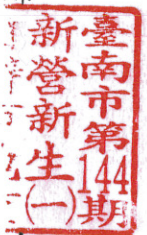 臺南市第144期
新營新生(一)